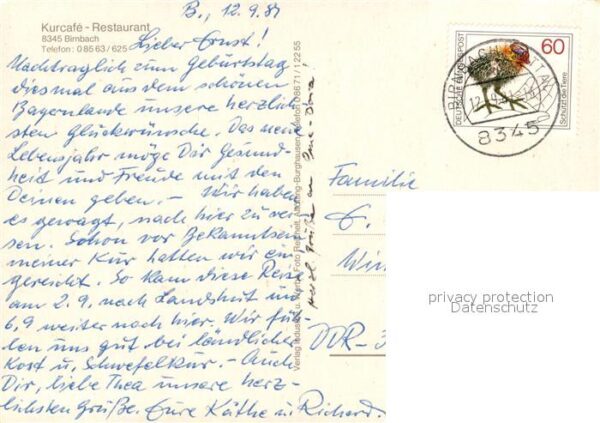 B., 12.9.81
Kurcafé - Restaurant
8345 Birnbach
Telefon: 08563/625
Lieber Ernst!
Nachträglich zum Geburtstag
diesmal aus dem schönen
Bayernlande unsere herzlich-
sten Glückwünsche. Das neue
Lebensjahr möge Dir Gesund-
heit und Freude mit den
Deinen geben. – Wir haben
es gewagt, nach hier zu rei-
sen. Schon vor Bekanntsein
meiner Kur hatten wir ein-
gereicht. So kam diese Reise
am 2.9. nach Landshut und
6.9 weiter nach hier. Wir füh-
len uns gut bei ländlicher
Kost u. Schwefelkur. – Auch
Dir, liebe Thea unsere herz-
lichsten Grüße. Eure Käthe u. Richard.
herzl. Grüße an
Verlag Industrie- u. Werbe-Foto Reichelt, Altötting-Burghausen, Telefon 08671/12255
Familie
E.
Win
DDR-3
DEUTSCHE BUNDESPOST
60
Schutz der Tiere
8345
privacy protection
Datenschutz